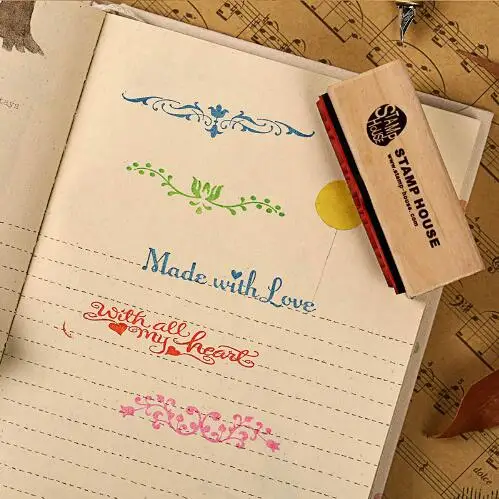 Made with Love
With all
my heart
STAMP
House
STAMP HOUSE
www.stamp-house.com
dolce